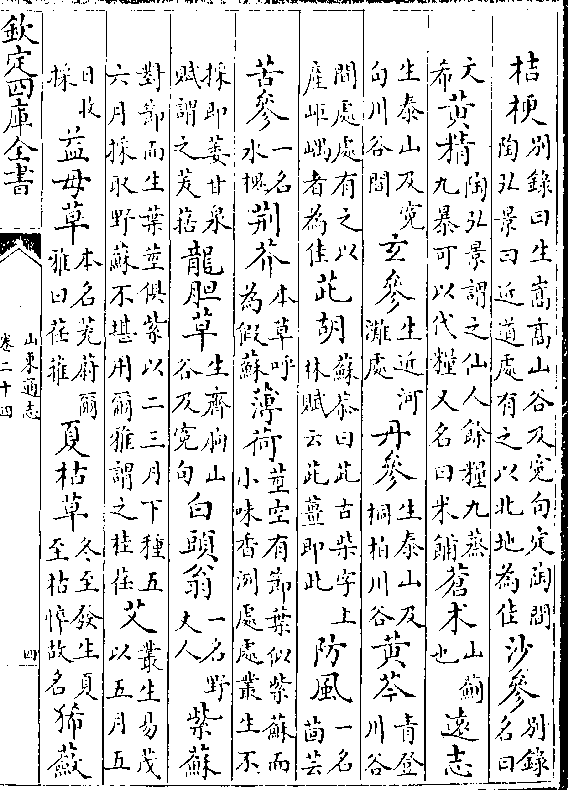 桔梗別錄曰生嵩高山谷及寃句定陶間陶弘景曰近道處有之以北地為佳沙參別錄名曰
文希黃精陶弘景謂之仙人餘糧九蒸九暴可以代糧又名曰米餔蒼术山薊也遠志
生泰山及寃句川谷間玄參生近河灘處丹參生泰山及桐柏川谷黃芩青登川谷
間處處有之以產岠嵎者為佳茈胡蘇恭曰此古柴字上林賦云茈薑即此防風一名茴芸
苦參一名水槐荆芥本草呼為假蘇薄荷莖空有節葉似紫蘇而小味香洌處處叢生不
採即萎甘泉賦謂之茇葀龍胆草生齊朐山谷及寃句白頭翁一名野丈人紫蘇
對節而生葉莖俱紫以二三月下種五六月採取野蘇不堪用爾雅謂之桂荏艾叢生易茂以五月五
日收採益母草本名茺蔚爾雅曰萑蓷夏枯草冬至發生夏至枯悴故名豨薟
欽定四庫全書
山東通志
卷二十四
四